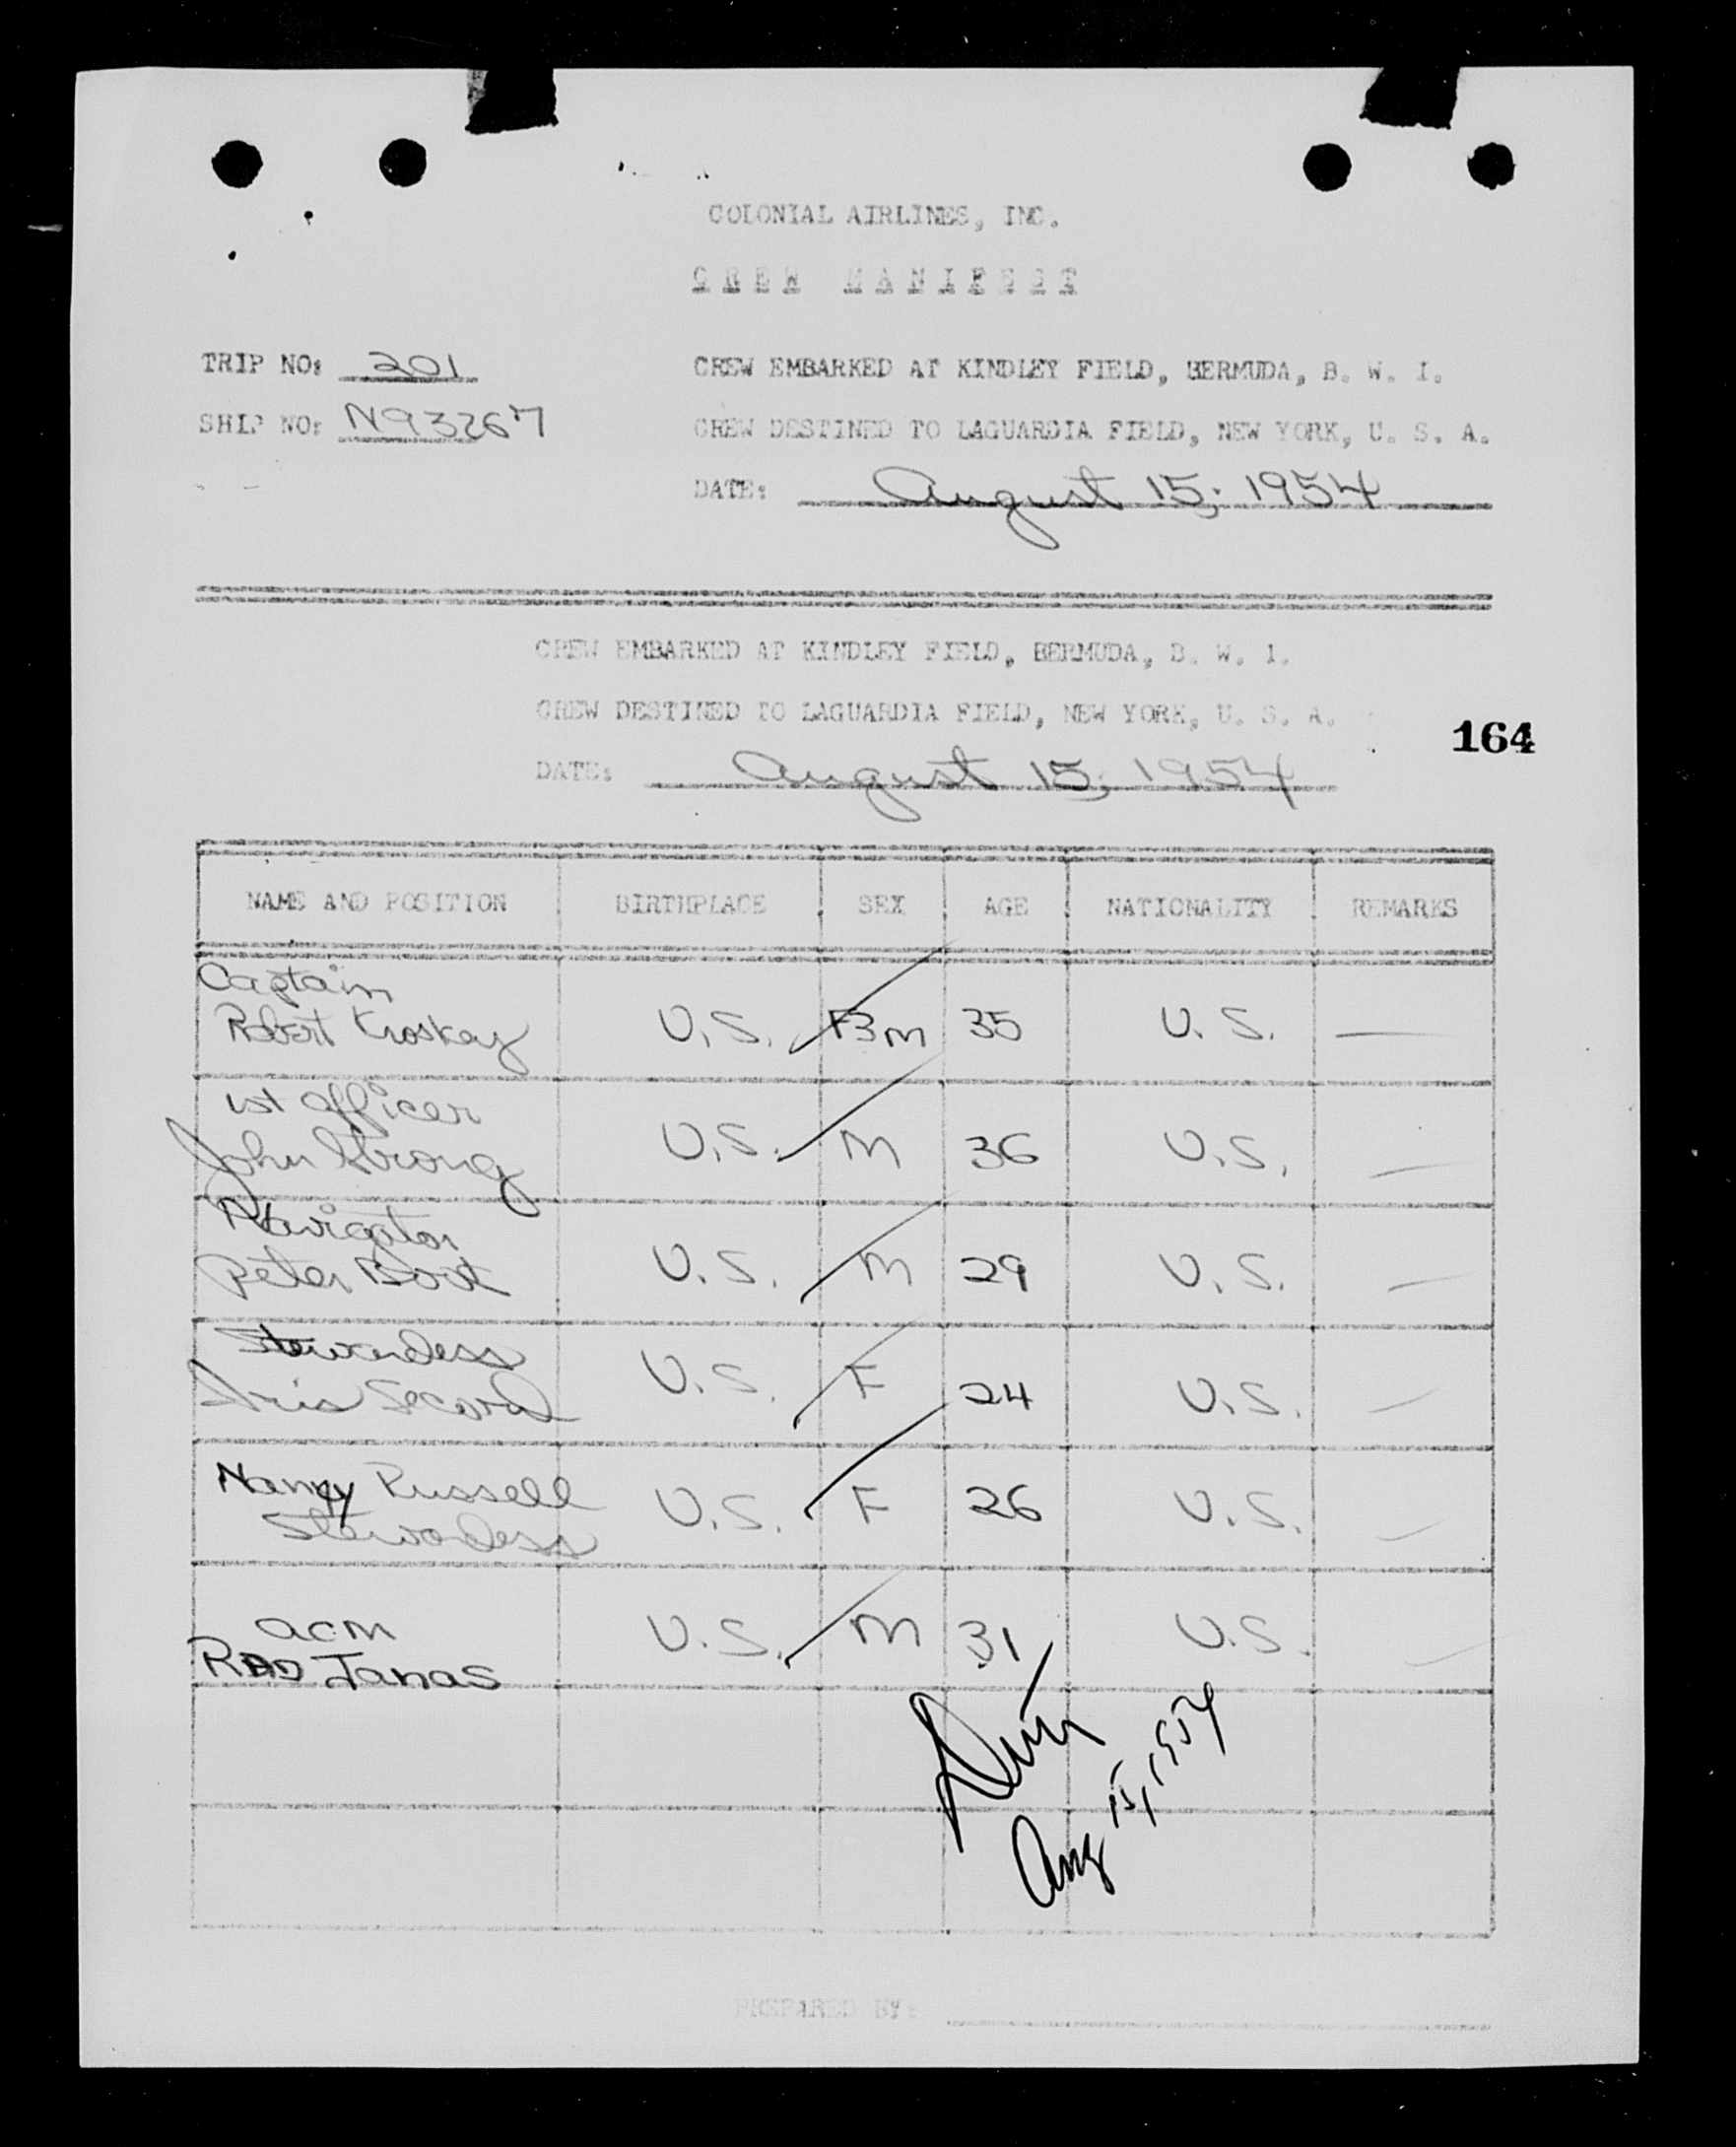 COLONIAL AIRLINES, INC.
CREW MANIFEST
TRIP NO: 201
CREW EMBARKED AT KINDLEY FIELD, BERMUDA, B. W. I.
SHIP NO: N93267
CREW DESTINED TO LAGUARDIA FIELD, NEW YORK, U. S. A.
DATE: August 15, 1954
CREW EMBARKED AT KINDLEY FIELD, BERMUDA, B. W. I.
CREW DESTINED TO LAGUARDIA FIELD, NEW YORK, U. S. A.
164
DATE: August 15, 1954
NAME AND POSITION BIRTHPLACE SEX AGE NATIONALITY REMARKS
Captain
Robert Kroskey U.S. M 35 U.S. —
1st Officer
John Strong U.S. M 36 U.S. —
Navigator
Peter U.S. M 29 U.S. —
Stewardess
Iris Secord U.S. F 24 U.S. —
Nancy Russell U.S. F 26 U.S. —
Stewardess
acm U.S. M 31 U.S. —
Janas
Aug 15, 1954
PREPARED BY: